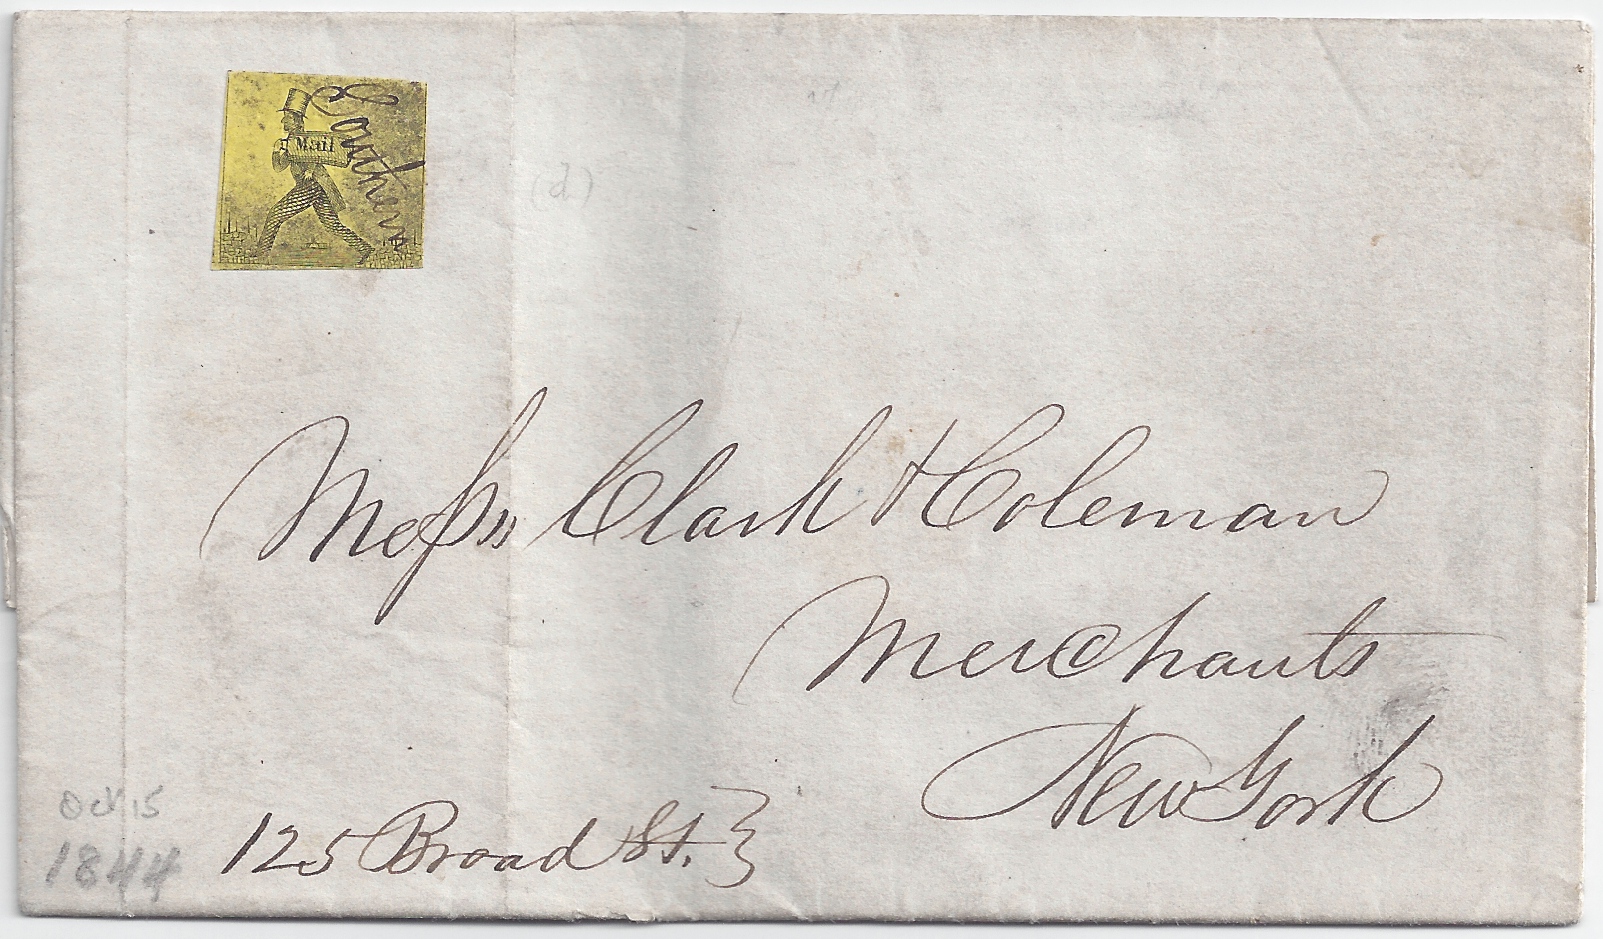 Mail
Southern
(d)
Messrs Clark & Coleman
Merchants
New York
125 Broad St. }
Oct 15
1844